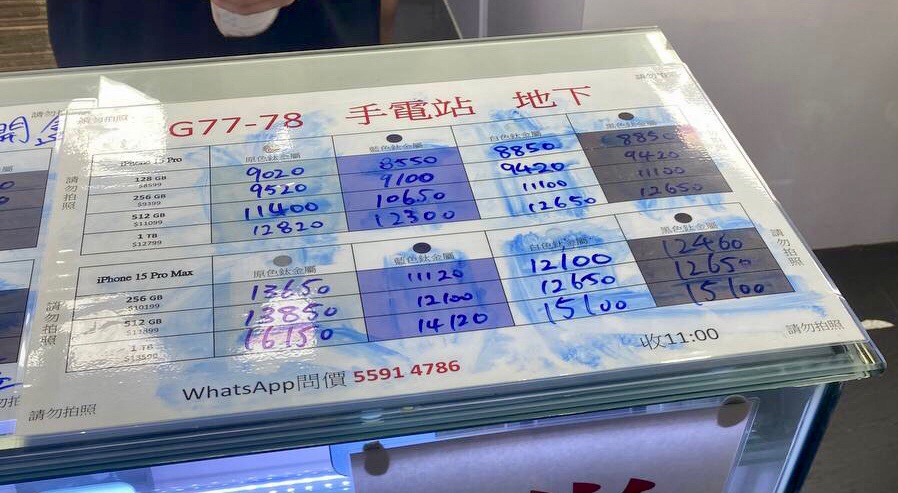 請勿拍照
請勿拍照
請勿拍照
G77-78 手電站 地下
iPhone 15 Pro 原色鈦金屬 藍色鈦金屬 白色鈦金屬 黑色鈦金屬
128 GB $8599 9020 8550 8850 8850
256 GB $9399 9520 9100 9420 9420
512 GB $11099 11400 10650 11100 11100
1 TB $12799 12820 12300 12650 12650
iPhone 15 Pro Max 原色鈦金屬 藍色鈦金屬 白色鈦金屬 黑色鈦金屬
256 GB $10199 13650 11120 12100 12460
512 GB 13850 12100 12650 12650
1 TB $13599 16150 14120 15100 15100
請勿拍照
請勿拍照
請勿拍照
請勿拍照
WhatsApp問價 5591 4786
收11:00
請勿拍照
請勿拍照